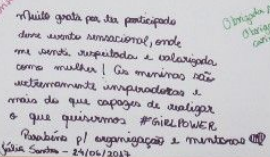 Muito grata por ter participado
desse evento sensacional, onde
me senti respeitada e valorizada
como mulher! As meninas são
extremamente inspiradoras e
mais do que capazes de realizar
o que quisermos #GIRLPOWER
Parabéns p/ organização e mentoras
Júlia Santos - 24/06/2017
Obrigada